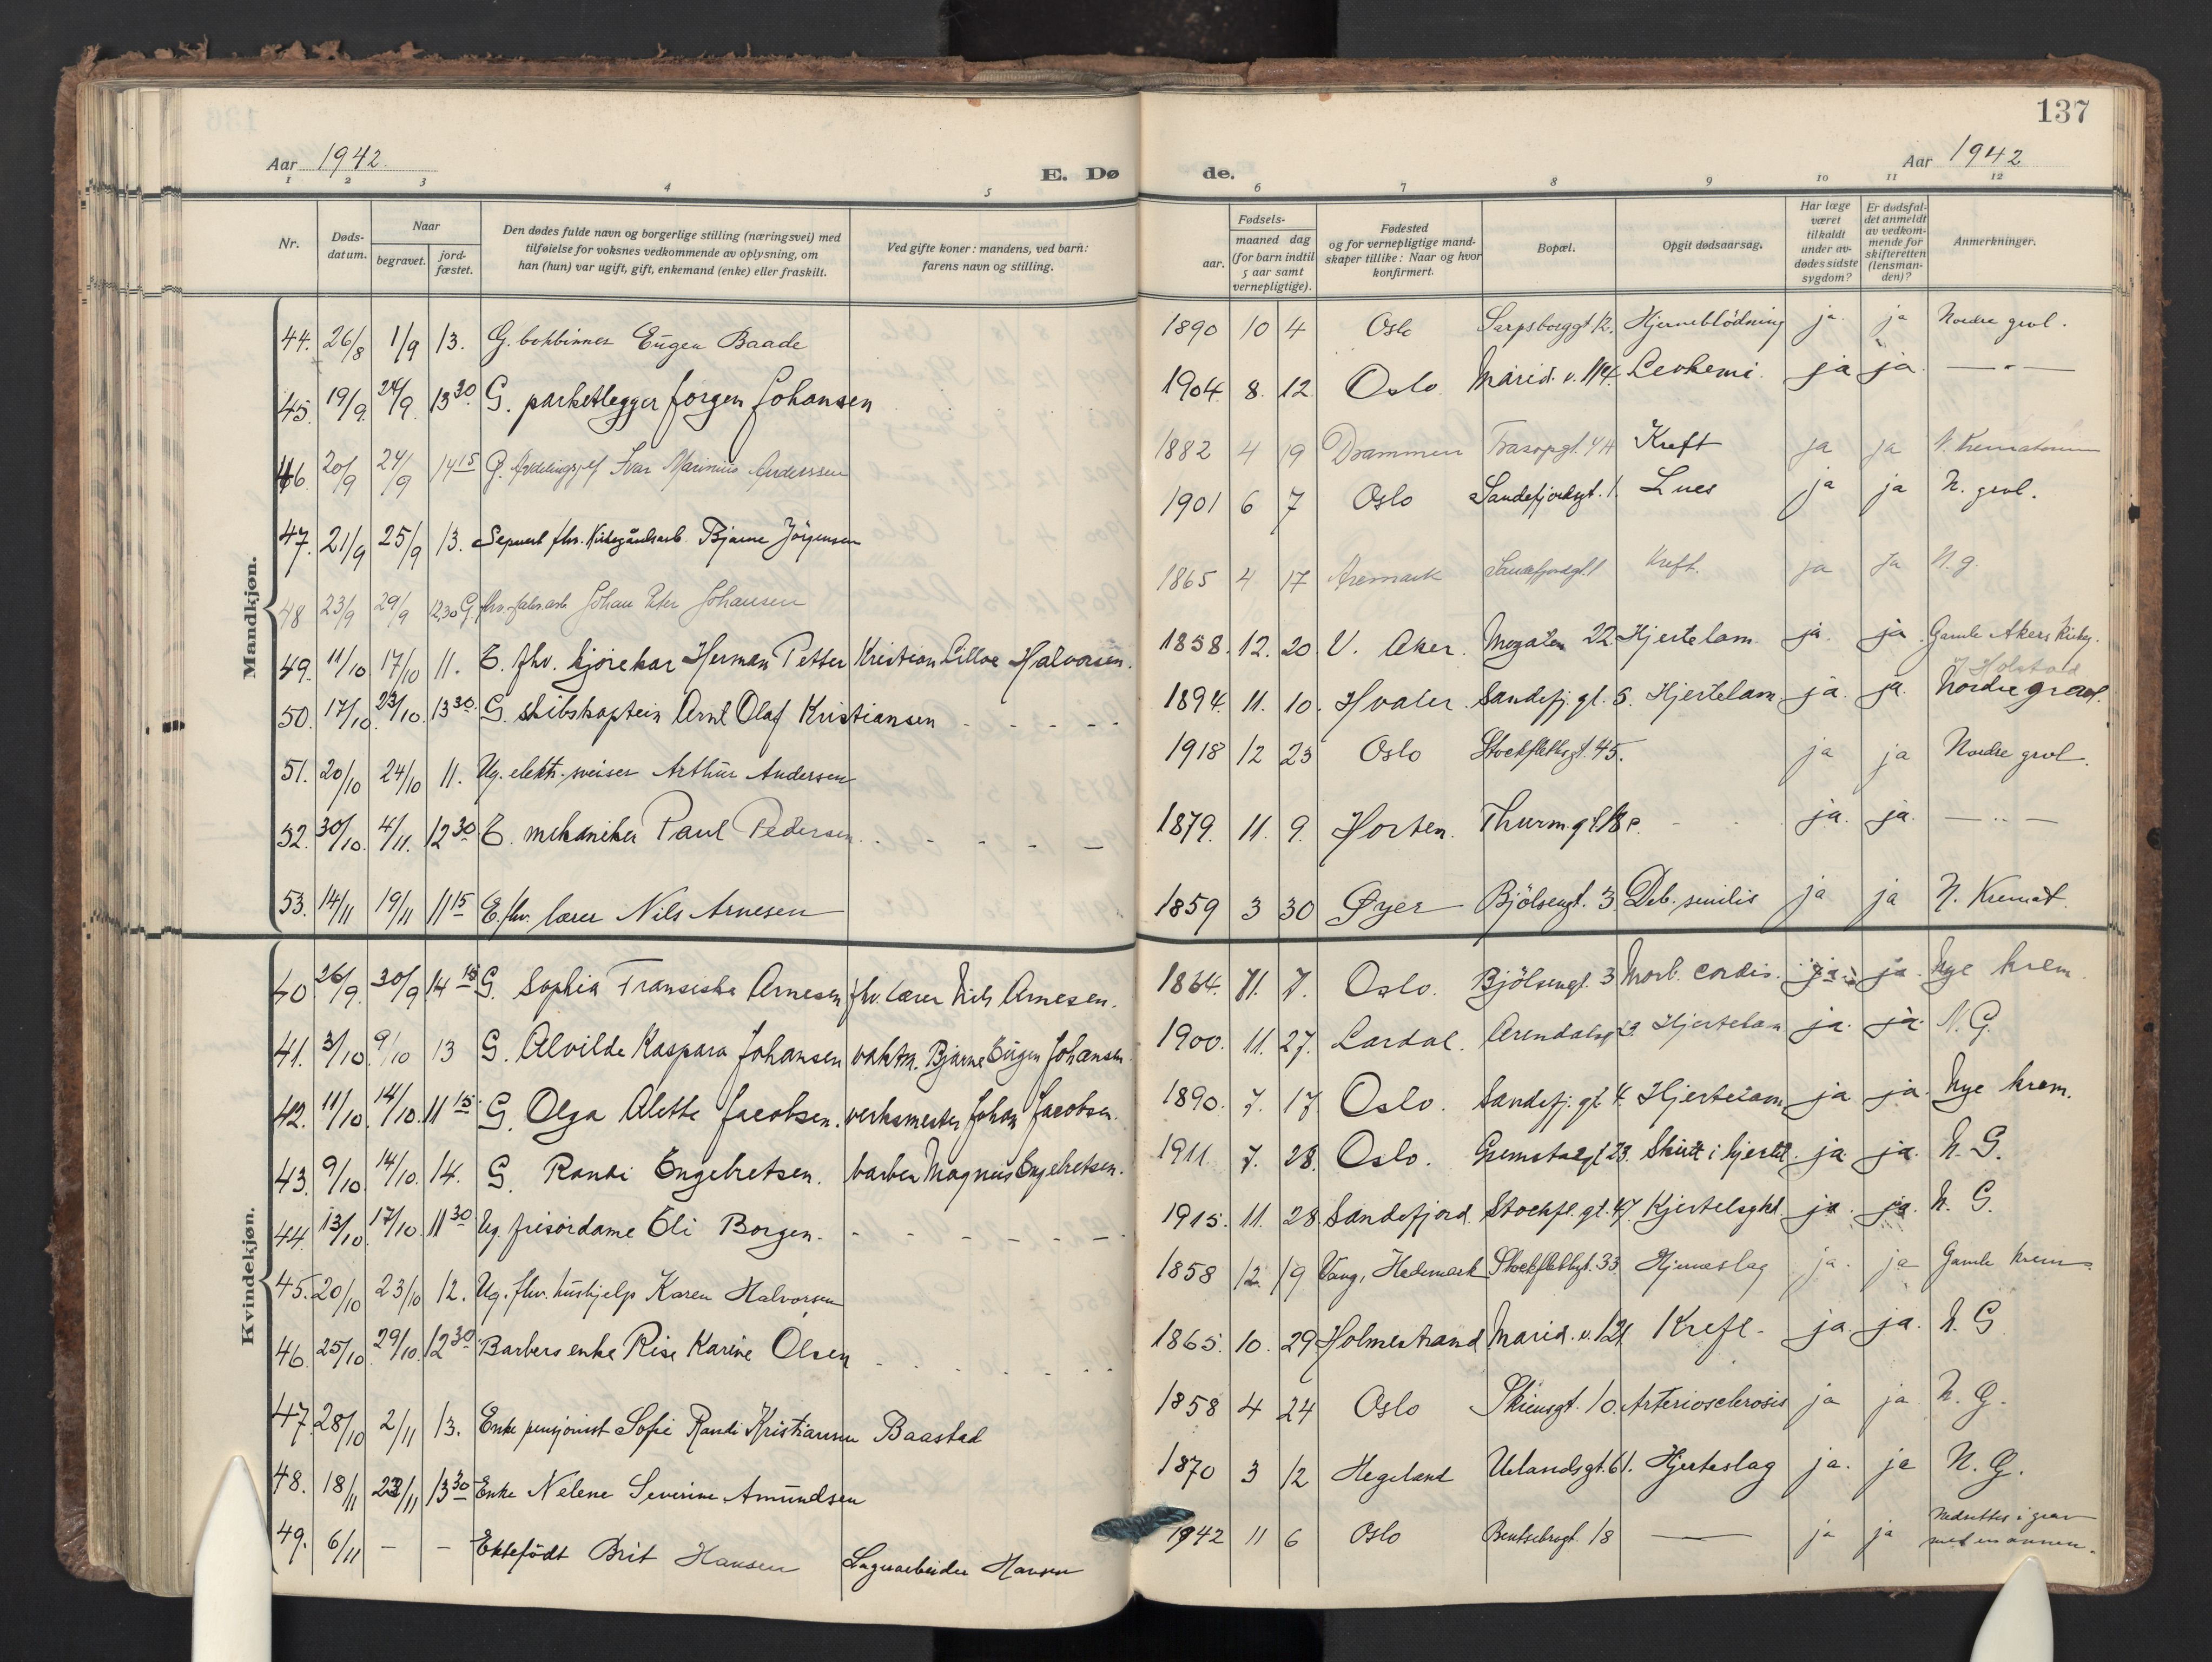 137
Aar 1942. E. Dø de. Aar 1942
1 2 3 4 5 6 7 8 9 10 11 12
Nr. Døds-datum. Naar begravet. jord-fæstet. Den dødes fulde navn og borgerlige stilling (næringsvei) med tilføielse for voksnes vedkommende av oplysning, om han (hun) var ugift, gift, enkemand (enke) eller fraskilt. Ved gifte koner: mandens, ved barn: farens navn og stilling. Fødsels- aar. maaned dag (for barn indtil 5 aar samt vernepligtige). Fødested og for vernepligtige mand-skaper tillike: Naar og hvor konfirmert. Bopæl. Opgit dødsaarsag. Har læge været tilkaldt under av-dødes sidste sygdom? Er dødsfal-det anmeldt av vedkom-mende for skifteretten (lensman-den)? Anmerkninger.
Mandkjøn.
44. 26/8 1/9 13. G. bokbinner Eugen Baade 1890 10 4 Oslo Sarpsborggt. 12. Hjerneblödning ja ja Nordre gravl.
45. 19/9. 24/9. 13 30 G. parketlegger Jorgen Johansen 1904. 8. 12. Oslo. Marid. v. Levkemi. ja ja. — " —
46. 20/9 24/9 14 15 G. Ivar Marinius Anderssen 1882 4 19 Drammen 44 Kreft ja ja N. Krematorium
47. 21/9 25/9 13. Separert fhv. Kirkegårdsarb. Bjarne Jörgensen 1901 6 7 Oslo Sandefjordgt. 1. Lues ja ja N. gravl.
48 23/9 29/9 12,30 G. fhv. Johan Peter Johansen 1865 4 17 Aremark Sandefjordgt. 1 Kreft. ja ja N. g.
49. 11/10 17/10 11. E. fhv. kjörekar Herman Petter Kristian Lilloe Halvorsen. 1858. 12. 20. V. Aker. Mogaten 22. Hjertelam. ja. ja. Gamle Akers Kirkeg.
50. 17/10. 23/10. 13 30 G. skibskaptein Arnt Olaf Kristiansen 1894. 11. 10. Hvaler. Sandefj. gt. 5. Hjertelam. ja. ja. Nordre gravl.
51. 20/10 24/10 11. Ug. elektr. sveiser Arthur Andersen 1918 12 23 Oslo Stockflethsgt. 45. ja ja Nordre gravl.
52. 30/10. 4/11. 12 30 E. mekaniker Paul Pedersen. 1879. 11. 9. Horten. Thurm.gt. 18 c. ja. ja. — " —
53. 14/11 19/11 11 15 E. fhv. lærer Nils Arnesen 1859 3 30 Øyer Bjölsengt. 3. Deb. senilis ja ja N. Kremat.
Kvindekjøn.
40. 26/9. 30/9 14 15 G. Sophia Fransiska Arnesen fhv. lærer Nils Arnesen. 1864. 11. 7. Oslo. Bjölsengt. 3 Morb. cordis. ja ja. Nye krem.
41. 3/10 9/10 13 G. Alvilde Kaspara Johansen vaktm. Bjarne Eugen Johansen. 1900. 11. 27. Lardal. Arendalsg. Hjertelam ja. ja. N. G.
42. 11/10. 14/10. 11 15. G. Olga Alette Jacobsen. verksmester Johan Jacobsen. 1890. 7. 17. Oslo. Sandefj. gt. 4. Hjertelam ja ja. Nye krem.
43. 9/10. 14/10. 14. G. Randi Engebretsen. barber Magnus Engebretsen. 1911. 7. 28. Oslo. Grimstadgt 23. Skutt i hjertet. ja ja. N. G.
44. 13/10. 17/10. 11 30 Ug. frisördame Eli Borgen. 1915. 11. 28. Sandefjord. Stockfl. gt. 47. ja. ja. N. G.
45. 20/10 23/10 12. Ug. fhv. hushjelp Karen Halvorsen 1858 12 19 Vang, Hedemark Stockflethsgt. 33 Hjerneslag ja. ja Gamle krem.
46. 25/10 29/10. 12 30 Barbers enke Rise Karine Olsen 1865. 10. 29. Holmestrand Marid. v. 121 Kreft. ja. ja. N. G
47. 28/10 2/11 13. Enke pensjonist Sofie Randi Kristiansen Baastad 1858 4 24 Oslo Skiensgt. 10. Arteriosclerosis ja ja N. G.
48. 18/11 23/11 13 30 Enke Nelene Severine Amundsen 1870 3 12 Hegeland Uelandsgt. 61. Hjerteslag ja. ja N. G.
49. 6/11 — — Ektefödt Brit Hansen Lagerarbeider Hansen 1942 11 6 Oslo Bentsebrogt. 18 — ja ja Nedsettes i grav
med en annen.